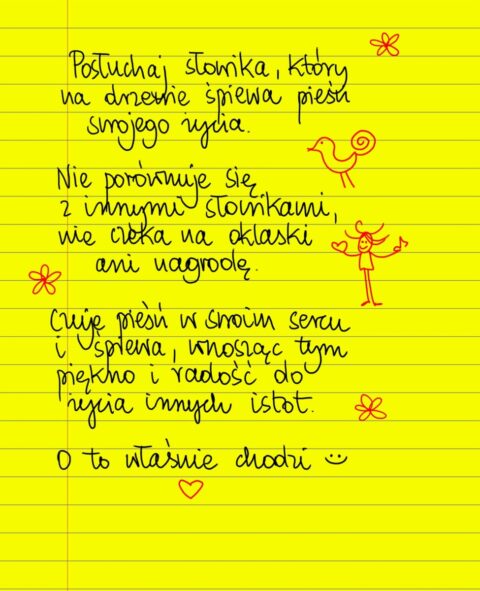 Posłuchaj słowika, który
na drzewie śpiewa pieśń
swojego życia.
Nie porównuje się
z innymi słowikami,
nie czeka na oklaski
ani nagrodę.
Czuje pieśń w swoim sercu
i śpiewa, wnosząc tym
piękno i radość do
życia innych istot.
O to właśnie chodzi